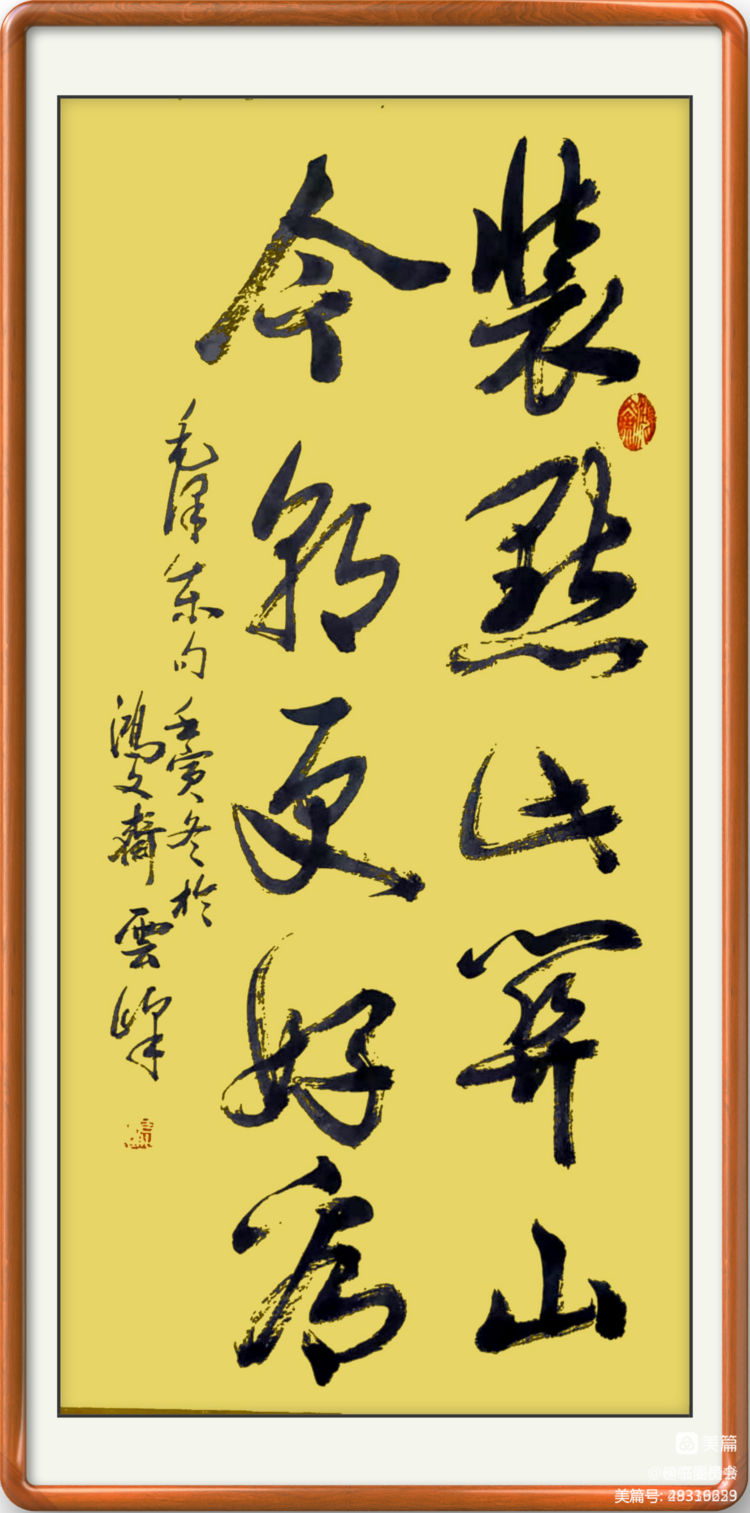 裝點此關山
今朝更好看
毛澤東句 壬寅冬於
鴻文齋 雲峰
美篇
美篇号: